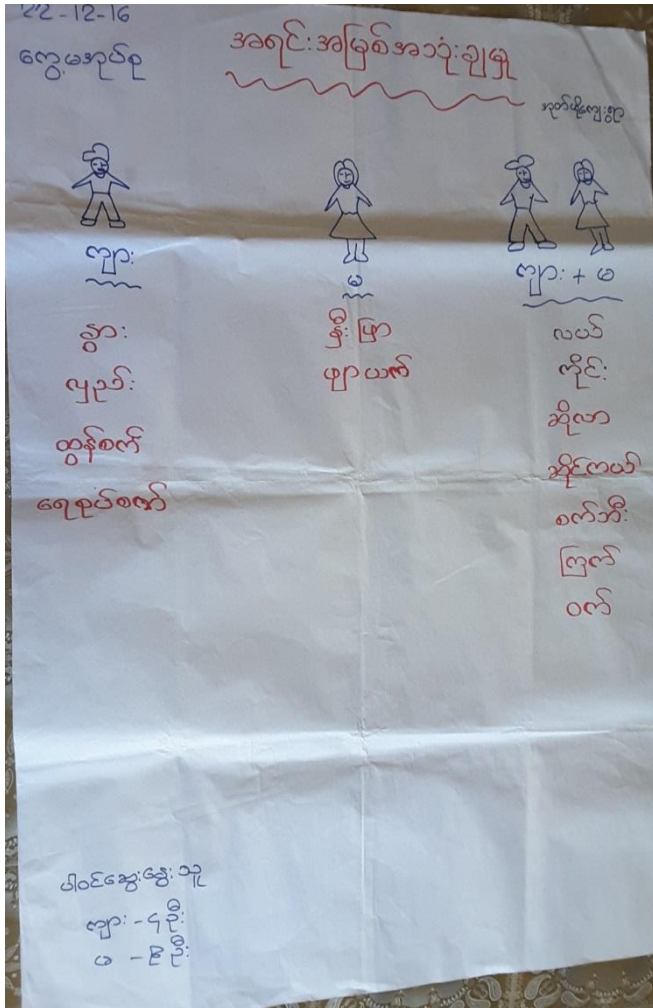 22-12-16
ကွေ့မအုပ်စု
အရင်းအမြစ်အသုံးချမှု
အုတ်ဖိုကျေးရွာ
ကျား
မ
ကျား + မ
နွား
လှည်း
ထွန်စက်
ရေစုပ်စက်
နှီးဖြာ
ဖျာယက်
လယ်
ကိုင်း
ဆိုလာ
ဆိုင်ကယ်
စက်ဘီး
ကြက်
ဝက်
ပါဝင်ဆွေးနွေးသူ
ကျား - ၄ဦး
မ - ၉ဦး